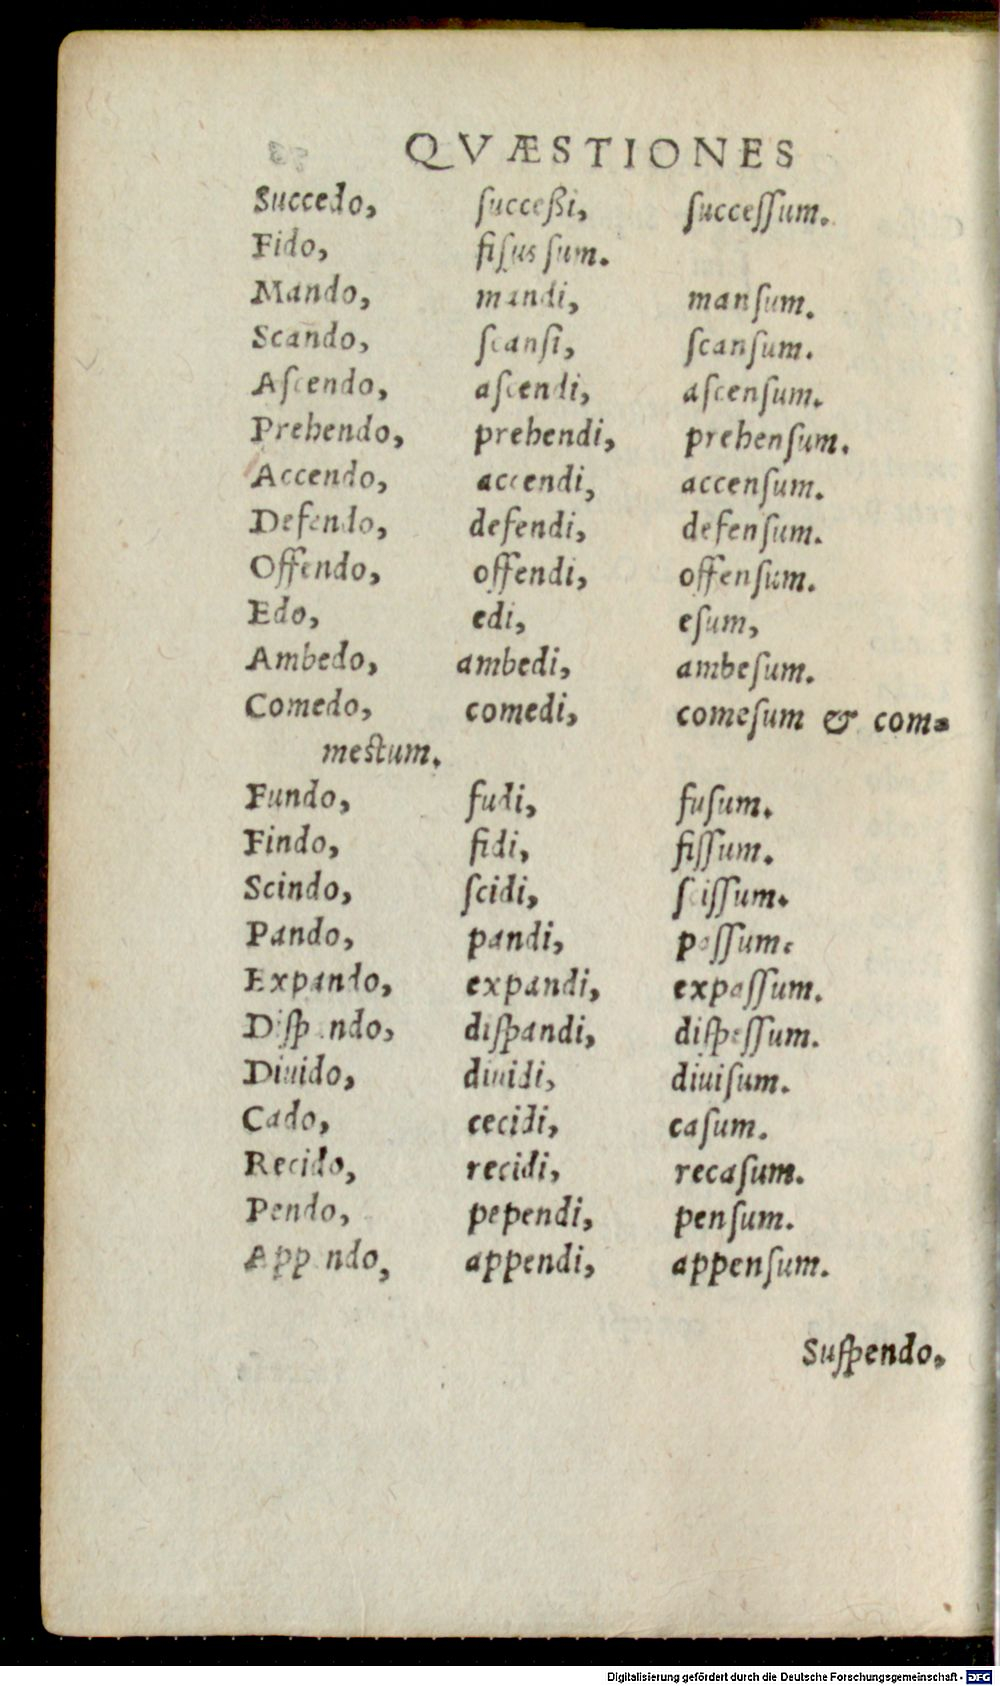 QVÆSTIONES
Succedo, ſucceßi, ſucceſſum.
Fido, fiſus sum.
Mando, mandi, manſum.
Scando, ſcanſi, ſcanſum.
Aſcendo, aſcendi, aſcenſum.
Prehendo, prehendi, prehenſum.
Accendo, accendi, accenſum.
Defendo, defendi, defenſum.
Offendo, offendi, offenſum.
Edo, edi, eſum,
Ambedo, ambedi, ambeſum.
Comedo, comedi, comeſum & com-
meſtum.
Fundo, fudi, fuſum.
Findo, fidi, fiſſum.
Scindo, ſcidi, ſciſſum.
Pando, pandi, paſſum.
Expando, expandi, expaſſum.
Diſpando, diſpandi, diſpeſſum.
Diuido, diuidi, diuiſum.
Cado, cecidi, caſum.
Recido, recidi, recaſum.
Pendo, pependi, penſum.
Appendo, appendi, appenſum.
Suſpendo,
Digitalisierung gefördert durch die Deutsche Forschungsgemeinschaft - DFG